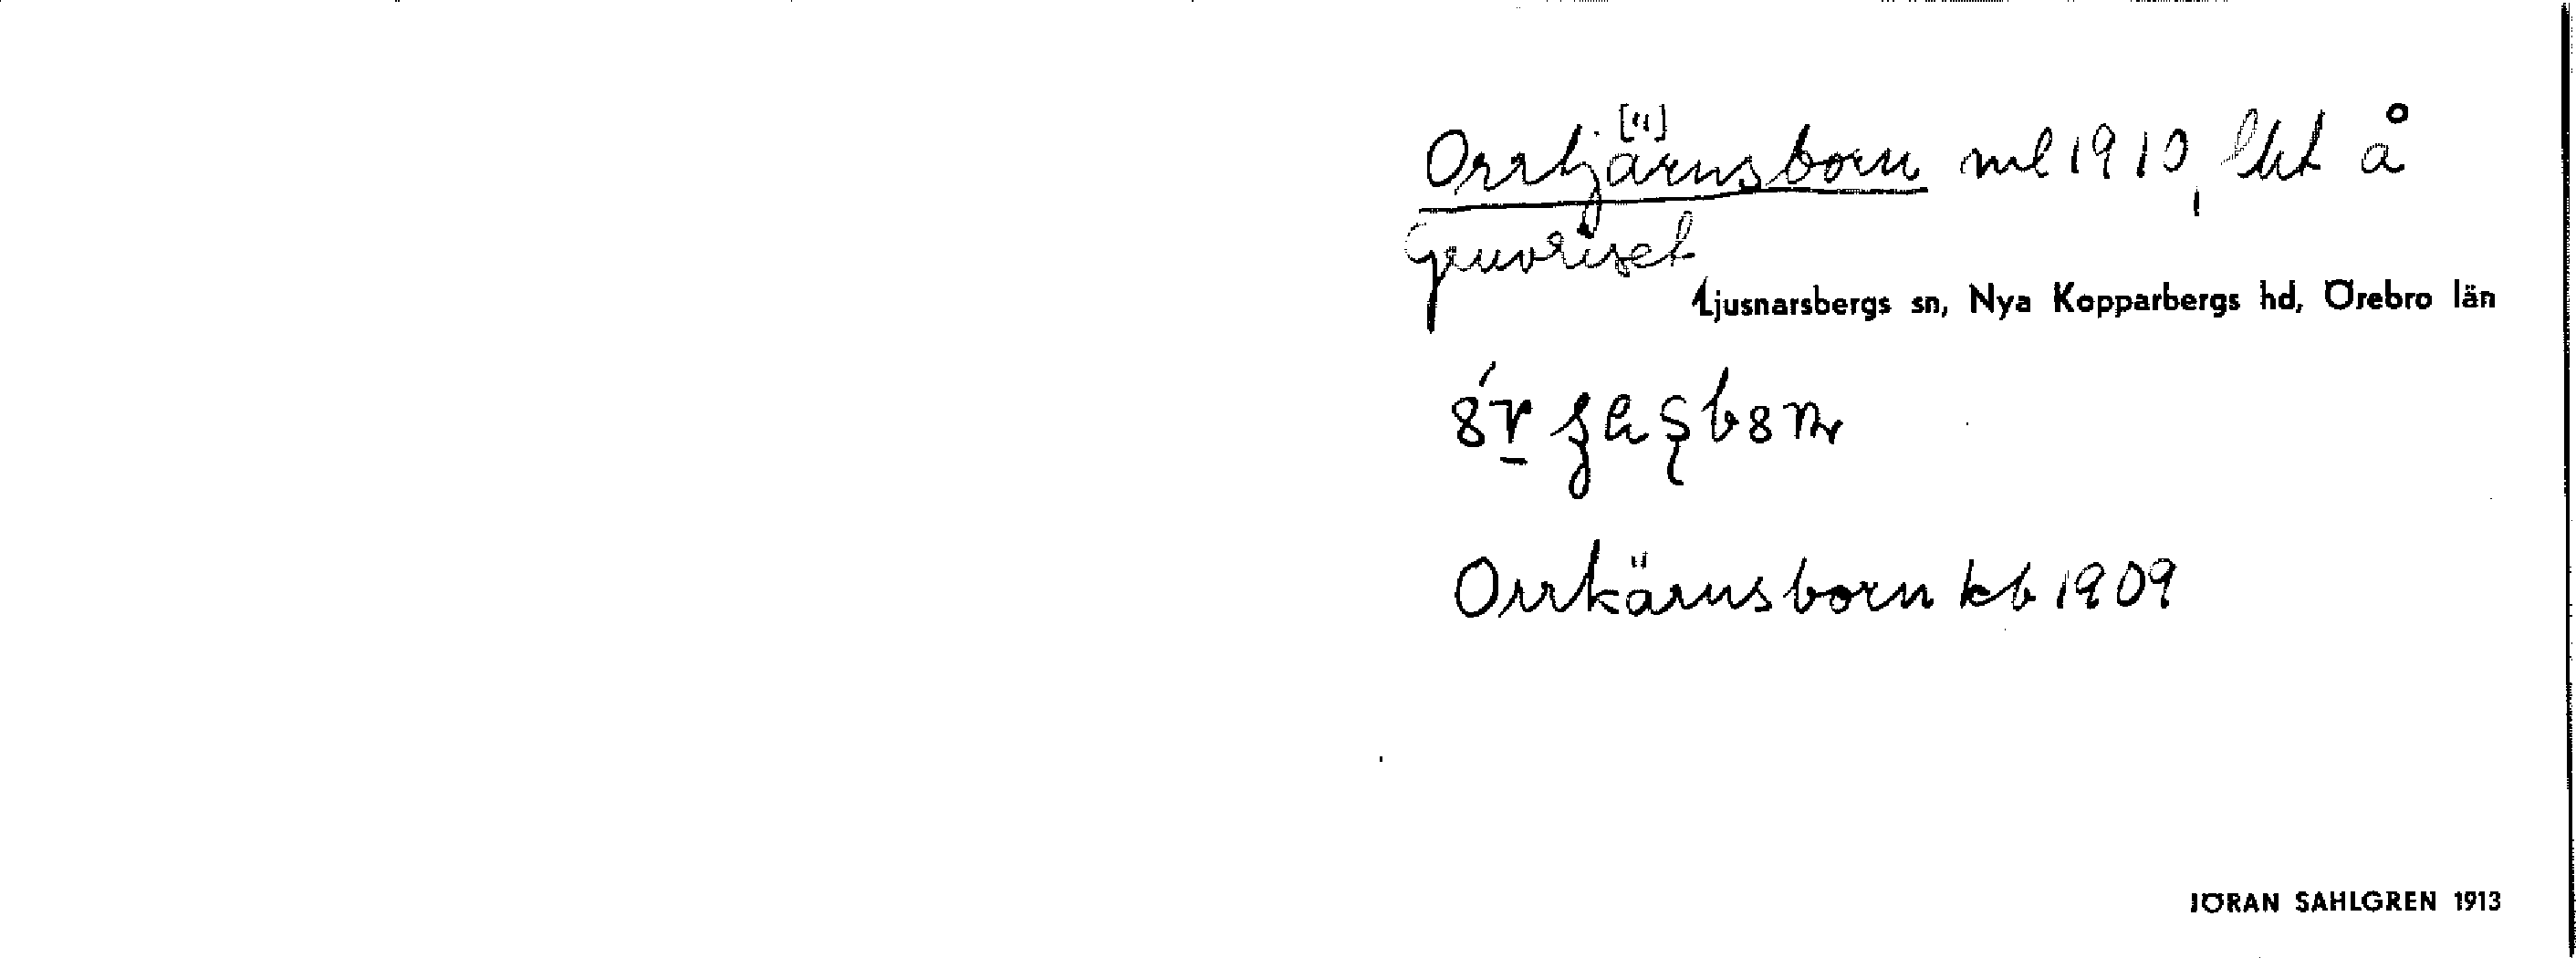 Orrtj[ä]rnsborn ml 1910, lht å
Gruvriset
Ljusnarsbergs sn, Nya Kopparbergs hd, Örebro län
Orrkärnsborn kb 1909
JÖRAN SAHLGREN 1913